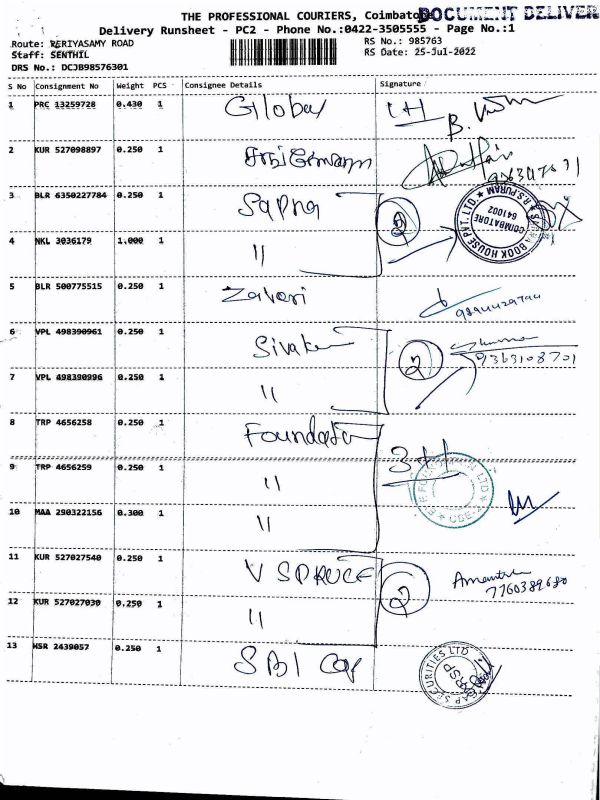 THE PROFESSIONAL COURIERS, Coimbatore
DOCUMENT DELIVER
Delivery Runsheet - PC2 - Phone No.:0422-3505555 - Page No.:1
Route: PERIYASAMY ROAD
Staff: SENTHIL
DRS No.: DCJB98576301
RS No.: 985763
RS Date: 25-Jul-2022
S No Consignment No Weight PCS Consignee Details Signature
1 PRC 13259728 0.430 1 Global
2 KUR 527098897 0.250 1
3 BLR 6350227784 0.250 1 Sapna 2
SAPNA BOOK HOUSE PVT. LTD. R.S.PURAM COIMBATORE 641002
4 NKL 3036179 1.000 1 "
5 BLR 500775515 0.250 1 Zaveri
6 VPL 498390961 0.250 1 Sivakum 2
9363108701
7 VPL 498390996 0.250 1 "
8 TRP 4656258 0.250 1 Foundation
9 TRP 4656259 0.250 1 "
10 MAA 290322156 0.300 1 "
11 KUR 527027540 0.250 1 V SPRUCE 2
7760389680
12 KUR 527027030 0.250 1 "
13 HSR 2439057 0.250 1 SBI Cap
CAP SECURITIES LTD